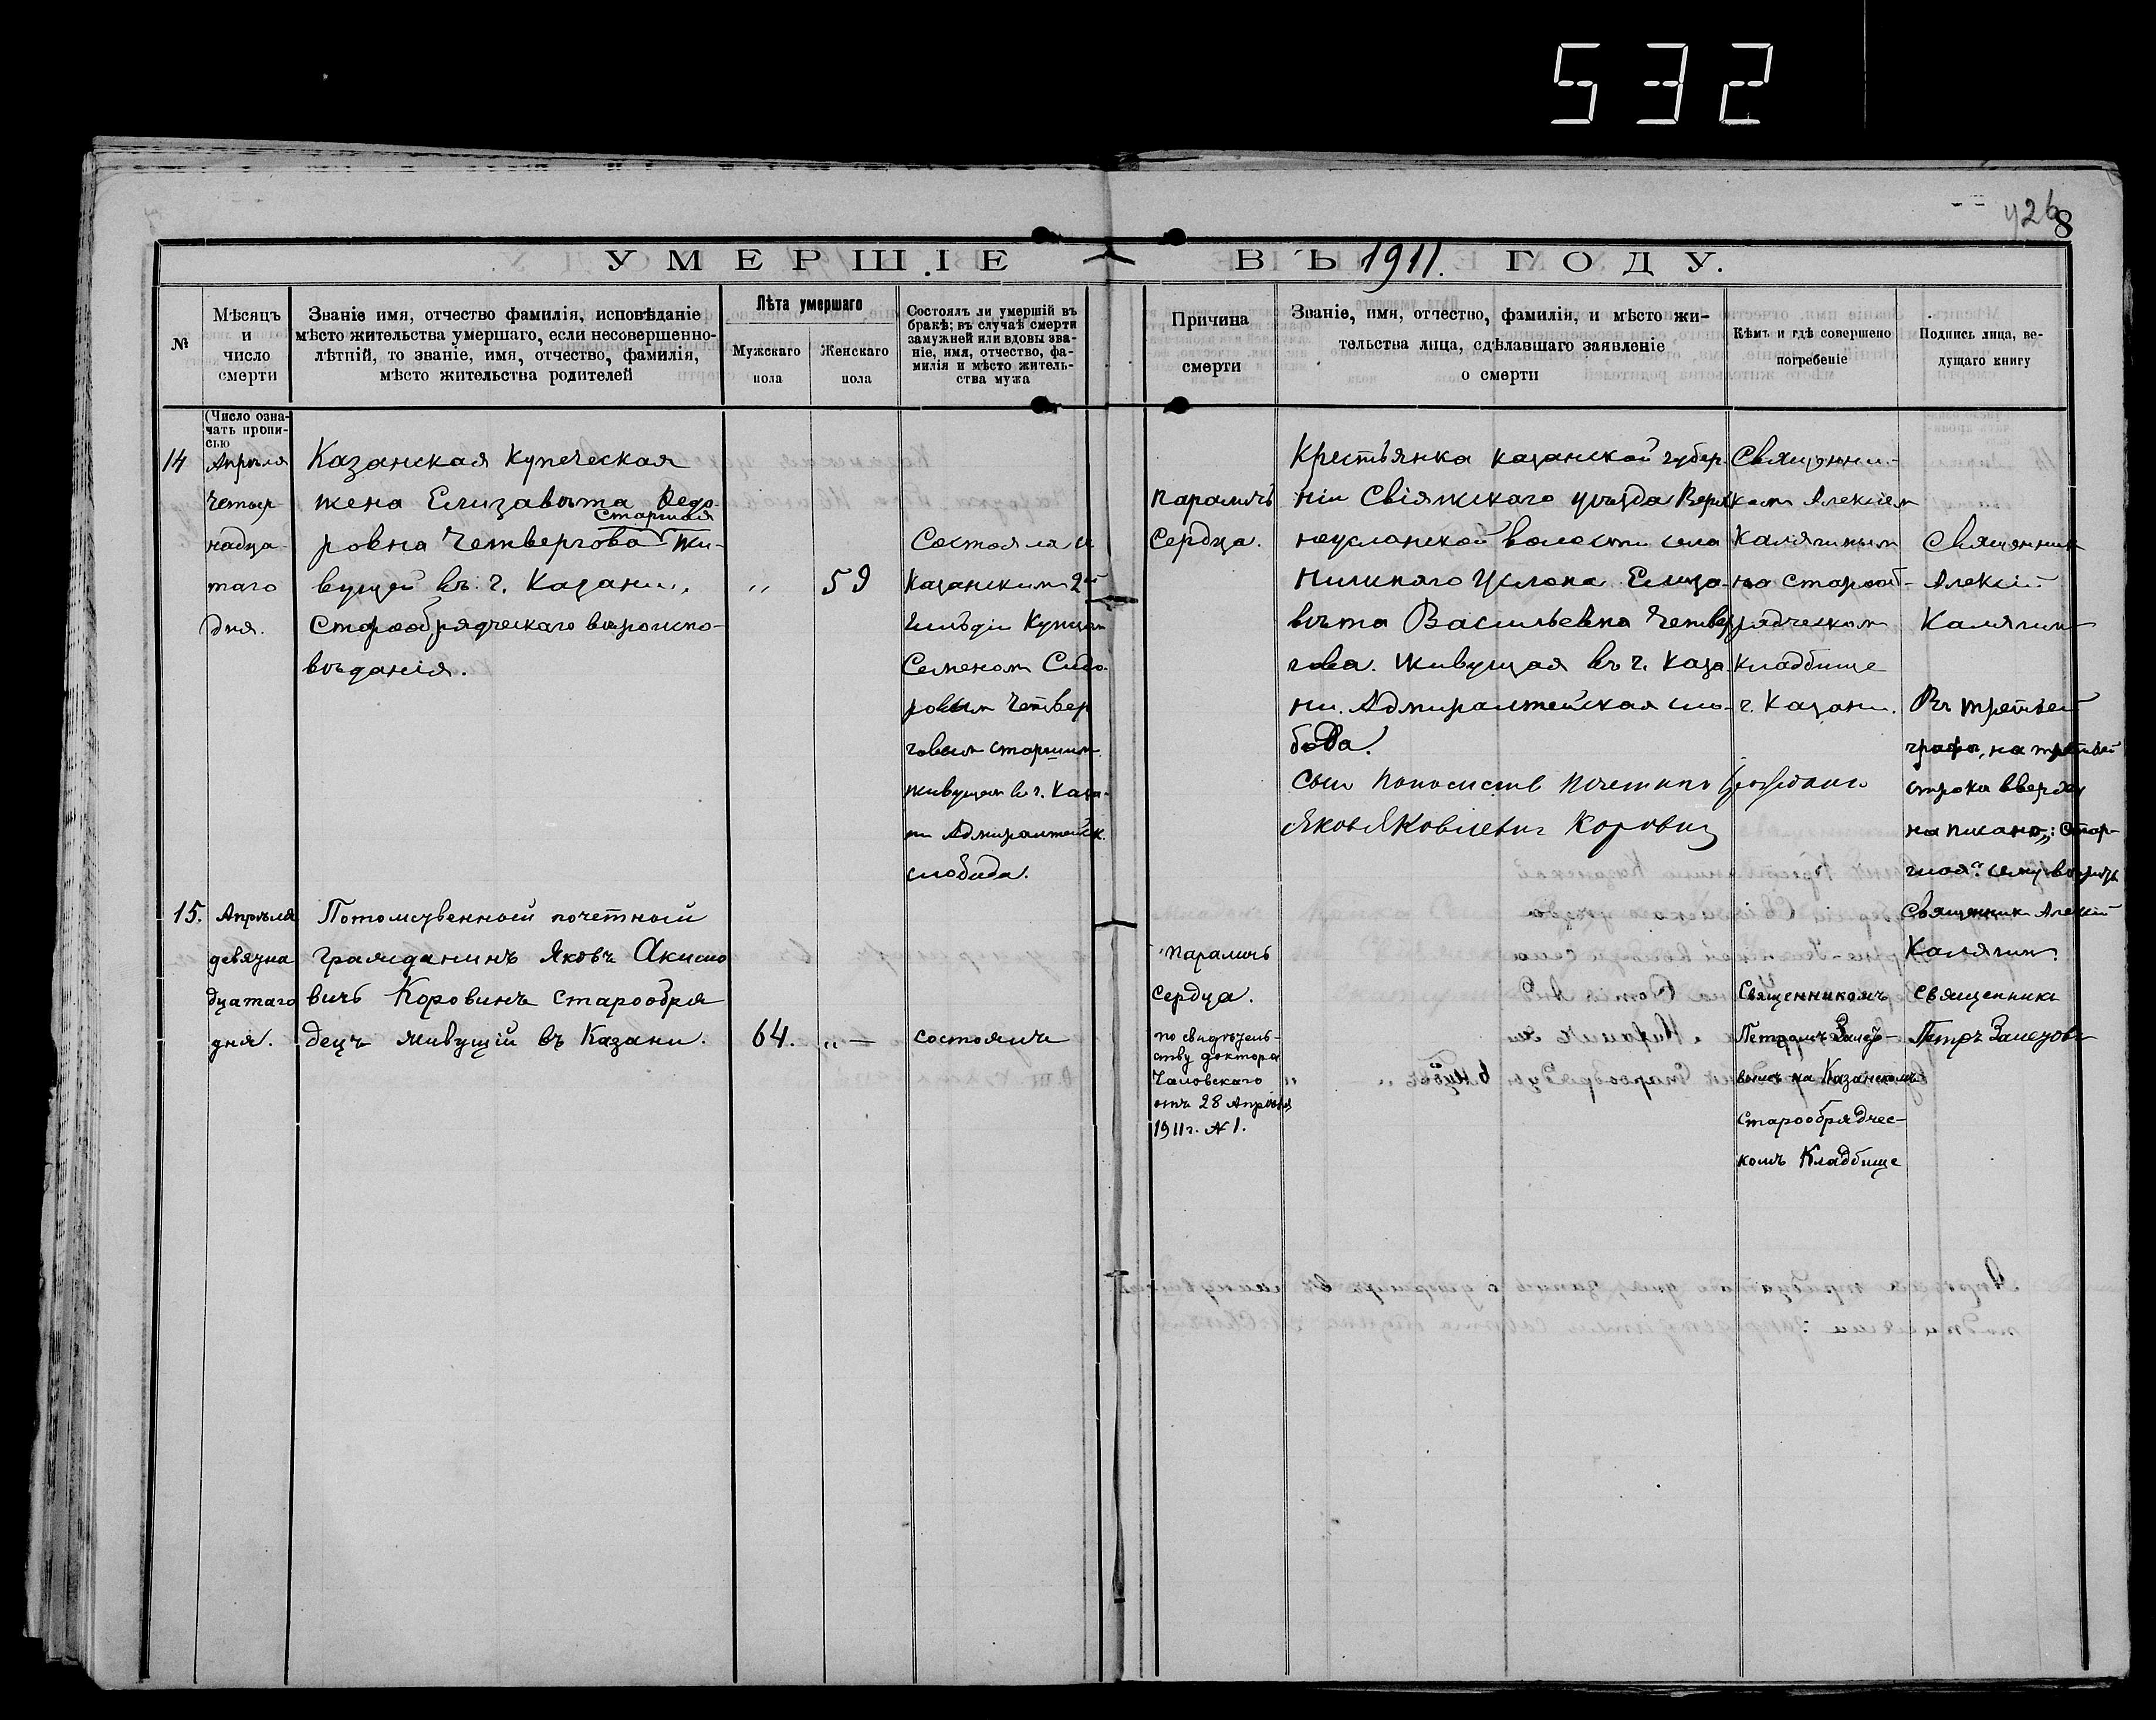 532
426
8
УМЕРШІЕ ВЪ 1911 ГОДУ.
№
Мѣсяцъ
и
число
смерти
Званіе имя, отчество фамилія, исповѣданіе
мѣсто жительства умершаго, если несовершенно-
лѣтній, то званіе, имя, отчество, фамилія,
мѣсто жительства родителей
Лѣта умершаго
Мужскаго
пола
Женскаго
пола
Состоялъ ли умершій въ
бракѣ; въ случаѣ смерти
замужней или вдовы зва-
ніе, имя, отчество, фа-
милія и мѣсто житель-
ства мужа
Причина
смерти
Званіе, имя, отчество, фамилія, и мѣсто жи-
тельства лица, сдѣлавшаго заявленіе
о смерти
Кѣмъ и гдѣ совершено
погребеніе
Подпись лица, ве-
дущаго книгу
(Число озна-
чать пропи-
сью
14
Апрѣля
Четыр-
надца
таго
дня.
Казанская Купеческая
жена Елизавѣта Ѳедо-
Старшая
ровна Четвергова Жи-
вущей въ г. Казани,
Старообрядческаго вѣроиспо-
вѣданія.
"
59
Состояла съ
Казанским 2й
Гильдіи Купцом
Семеном Сидо-
ровым Четвер
говым старшим
живущем в г. Каза-
ни Адмиралтейск.
слобода.
параличъ
Сердца.
Крестьянка казанской губер-
ніи Свіяжскаго уѣзда Верх
неуслонской волости села
Нижняго Услона Елиза-
вѣта Васильевна Четвер
гова. Живущая въ г. Каза
ни. Адмиралтейская сло-
бода.
Священни-
ком Алексіем
Калягиным
на старооб-
рядческом
кладбище
г. Казани.
Священник
Алексій
Калягин
Въ третьей
графѣ, на третьей
строки вверху
написано,: Стар-
шая"
Священник Алексій
Калягин.
15.
Апрѣля
девятна
дцатаго
дня.
Потомственный почетный
гражданинъ Яковъ Акимо
вичъ Коровинъ старообря
децъ живущій въ Казани.
64.
" —
состоялъ
Параличъ
Сердца.
по свидѣтель-
ству доктора
Чаловскаго
отъ 28 Апрѣля
1911 г. № 1.
сын Потомств Почетнаго гражданина
Яков Яковлевич Коровин
Священникомъ
Петромъ Залет-
вымъ на Казанскомъ
старообрядчес-
комъ Кладбище
Священникъ
Петръ Залетовъ